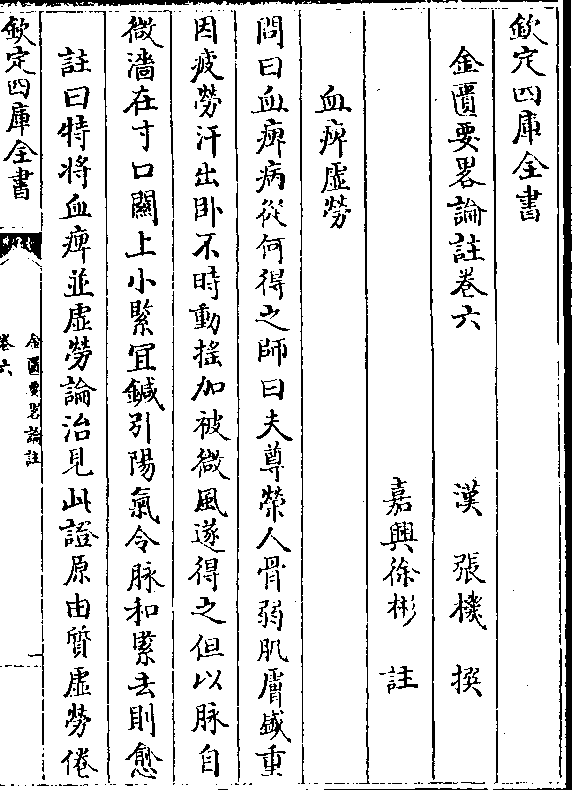 欽定四庫全書
金匱要畧論註卷六
漢 張機 撰
嘉興徐彬 註
血痺虛勞
問曰血痺病從何得之師曰夫尊榮人骨弱肌膚盛重
因疲勞汗出卧不時動搖加被微風遂得之但以脉自
微濇在寸口關上小緊宜鍼引陽氣令脉和緊去則愈
註曰特將血痺並虛勞論治見此證原由質虛勞倦
欽定四庫全書
金匱要畧論註
卷六
一